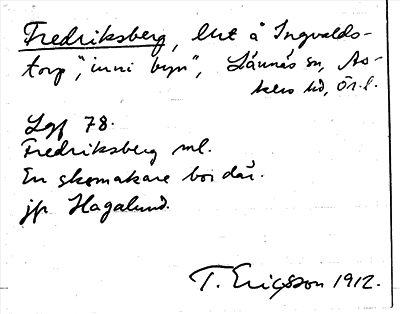 Fredriksberg, lht å Ingvalds-
torp, "inni byn", Lännäs sn, As-
kers hd, Ör.l.
Lgf 78.
Fredriksberg ml.
En skomakare bor där.
jfr Hagalund.
T. Ericsson 1912.